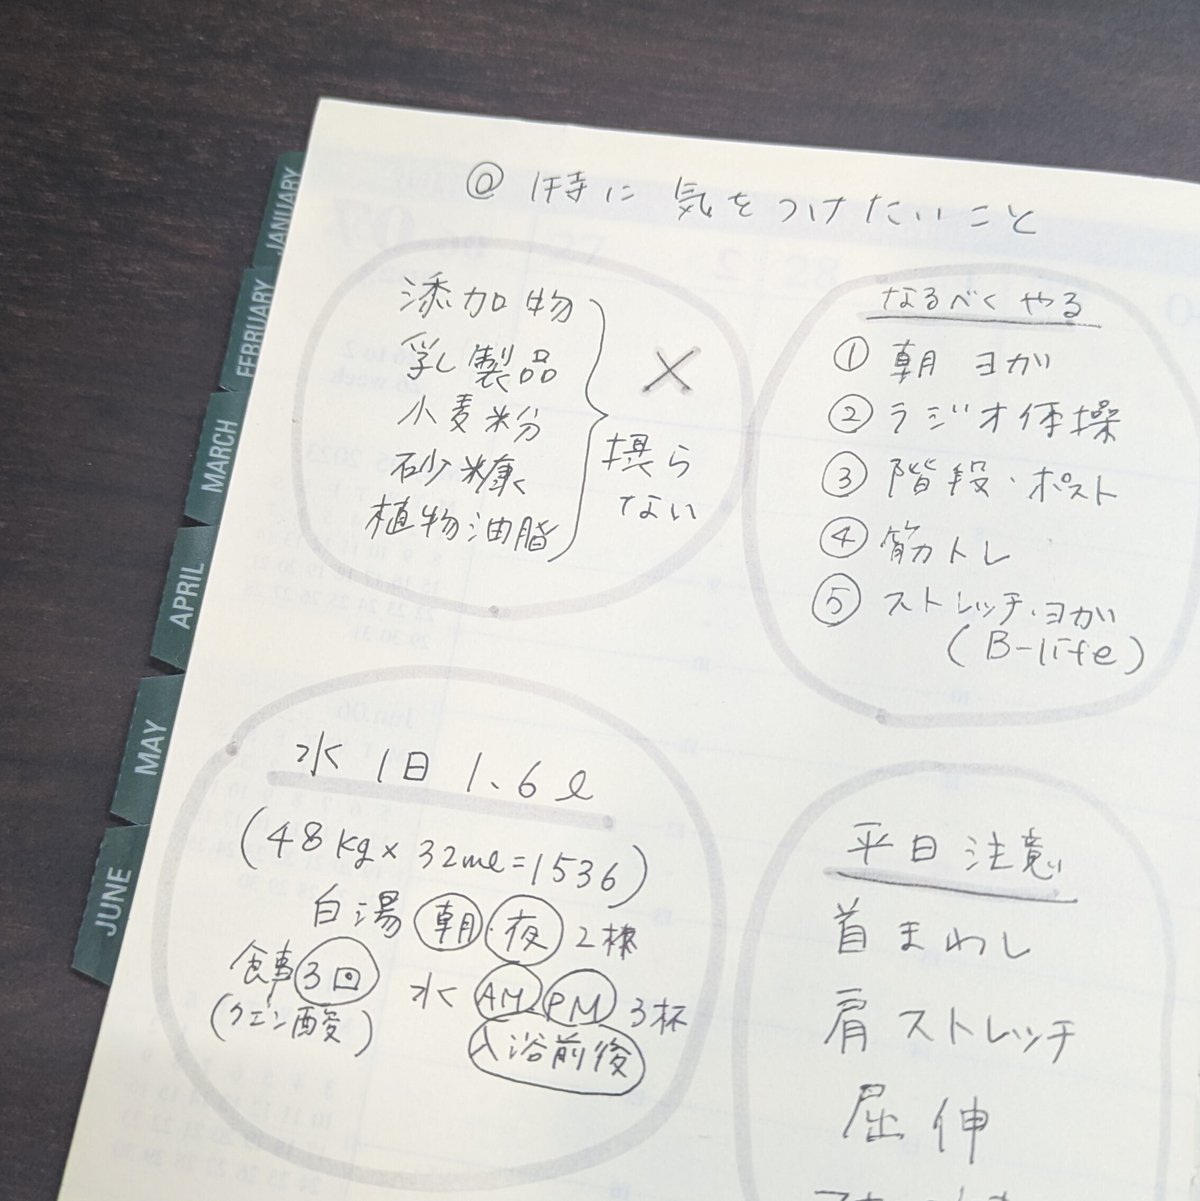 @ 特に気をつけたいこと
添加物
乳製品
小麦粉
砂糖
植物油脂
×
摂ら
ない
なるべくやる
① 朝ヨガ
② ラジオ体操
③ 階段・ポスト
④ 筋トレ
⑤ ストレッチ・ヨガ
(B-life)
水 1日 1.6ℓ
(48kg×32ml=1536)
白湯 朝・夜 2杯
食事3回 水 AM PM 3杯
(クエン酸) 入浴前後
平日注意
首まわし
肩ストレッチ
屈伸
JANUARY
FEBRUARY
MARCH
APRIL
MAY
JUNE